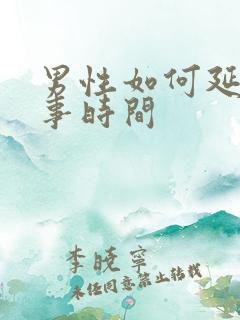 男性如何延
事時間
李曉寧
未经同意禁止转载